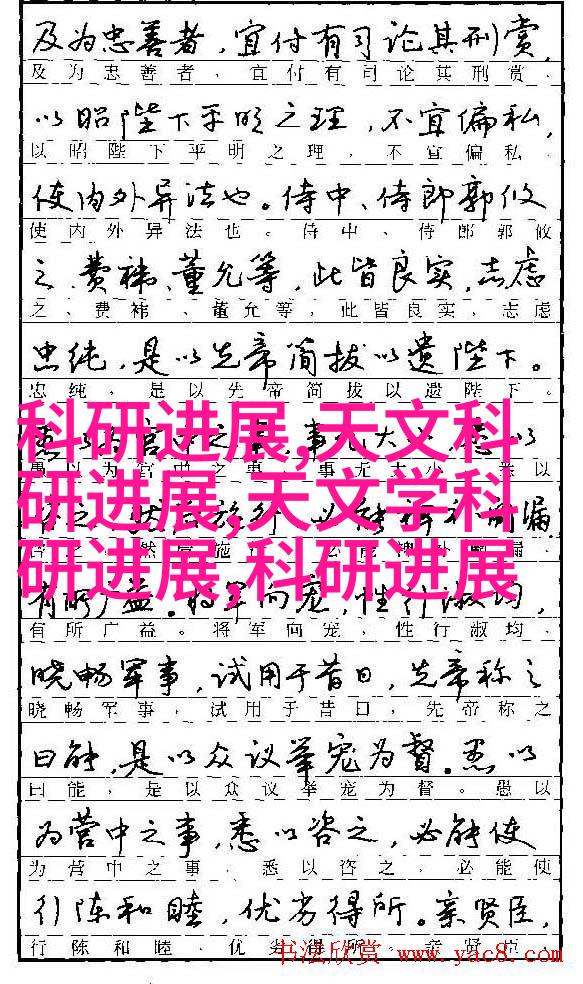 及为忠善者，宜付有司论其刑赏，
及为忠善者，宜付有司论其刑赏，
以昭陛下平明之理，不宜偏私，
以昭陛下平明之理，不宜偏私，
使内外异法也。侍中、侍郎郭攸
使内外异法也。侍中、侍郎郭攸
之、费祎、董允等，此皆良实，志虑
之、费祎、董允等，此皆良实，志虑
忠纯，是以先帝简拔以遗陛下。
忠纯，是以先帝简拔以遗陛下。
科研进展,天文科
研进展,天文学科
研进展,科研进展
愚以为宫中之事，事无大小，悉以
有所广益。将军向宠，性行淑均，
有所广益。将军向宠，性行淑均，
晓畅军事，试用于昔日，先帝称之
晓畅军事，试用于昔日，先帝称之
曰能，是以众议举宠为督。愚以
曰能，是以众议举宠为督。愚以
为营中之事，悉以咨之，必能使
为营中之事，悉以咨之，必能使
行陈和睦，优劣得所。亲贤臣，
行陈和睦，优劣得所。亲贤臣，
书法欣赏 www.yac8.com